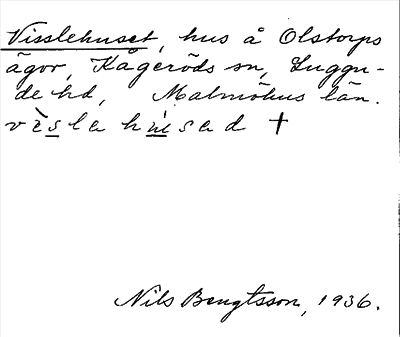 Visslehuset, hus å Olstorps
ägor, Kågeröds sn, Luggu-
de hd, Malmöhus län.
vìslahúsad †
Nils Bengtsson, 1936.